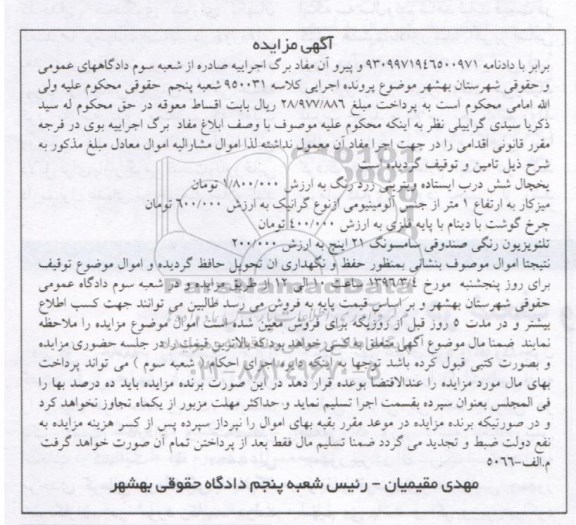 آگهی مزایده
برابر با دادنامه ۹۳۰۹۹۷۱۹۴۶۵۰۰۹۷۱ و پیرو آن مفاد برگ اجراییه صادره از شعبه سوم دادگاههای عمومی
و حقوقی شهرستان بهشهر موضوع پرونده اجرایی کلاسه ۹۵۰۰۳۱ شعبه پنجم حقوقی محکوم علیه ولی
الله امامی محکوم است به پرداخت مبلغ ۲۸/۹۷۷/۸۸۶ ریال بابت اقساط معوقه در حق محکوم له سید
ذکریا سیدی گراییلی نظر به اینکه محکوم علیه موصوف با وصف ابلاغ مفاد برگ اجراییه بوی در فرجه
مقرر قانونی اقدامی را در جهت اجرا مفاد آن معمول نداشته لذا اموال مشارالیه اموال معادل مبلغ مذکور به
شرح ذیل تامین و توقیف گردیده است
یخچال شش درب ایستاده ویترینی زرد رنگ به ارزش ۱/۸۰۰/۰۰۰ تومان
میزکار به ارتفاع ۱ متر از جنس آلومینیومی ازنوع گرانیک به ارزش ۶۰۰/۰۰۰ تومان
چرخ گوشت با دینام با پایه فلزی به ارزش ۴۰۰/۰۰۰ تومان
تلئویزیون رنگی صندوقی سامسونگ ۲۱ اینچ به ارزش ۲۰۰/۰۰۰
نتیجتا اموال موصوف بنشانی بمنظور حفظ و نگهداری ان تحویل حافظ گردیده و اموال موضوع توقیف
برای روز پنجشنبه مورخ ۱۳۹۶/۳/۴ ساعت ۱۰ الی ۱۲ از طریق مزایده و در شعبه سوم دادگاه عمومی
حقوقی شهرستان بهشهر و بر اساس قیمت پایه به فروش می رسد طالبین می توانند جهت کسب اطلاع
بیشتر و در مدت ۵ روز قبل از روزیکه برای فروش معین شده است اموال موضوع مزایده را ملاحظه
نمایند ضمنا مال موضوع آگهی متعلق به کسی خواهد بود که بالاترین قیمت را در جلسه حضوری مزایده
و بصورت کتبی قبول کرده باشد توجها به اینکه دایره اجرای احکام ( شعبه سوم ) می تواند پرداخت
بهای مال مورد مزایده را عندالاقتضا بوعده قرار دهد در این صورت برنده مزایده باید ده درصد بها را
فی المجلس بعنوان سپرده بقسمت اجرا تسلیم نماید و حداکثر مهلت مزبور از یکماه تجاوز نخواهد کرد
و در صورتیکه برنده مزایده در موعد مقرر بقیه بهای اموال را نپرداز سپرده پس از کسر هزینه مزایده به
نفع دولت ضبط و تجدید می گردد ضمنا تسلیم مال فقط بعد از پرداختن تمام آن صورت خواهد گرفت
م.الف-۵۰۶۶
مهدی مقیمیان - رئیس شعبه پنجم دادگاه حقوقی بهشهر